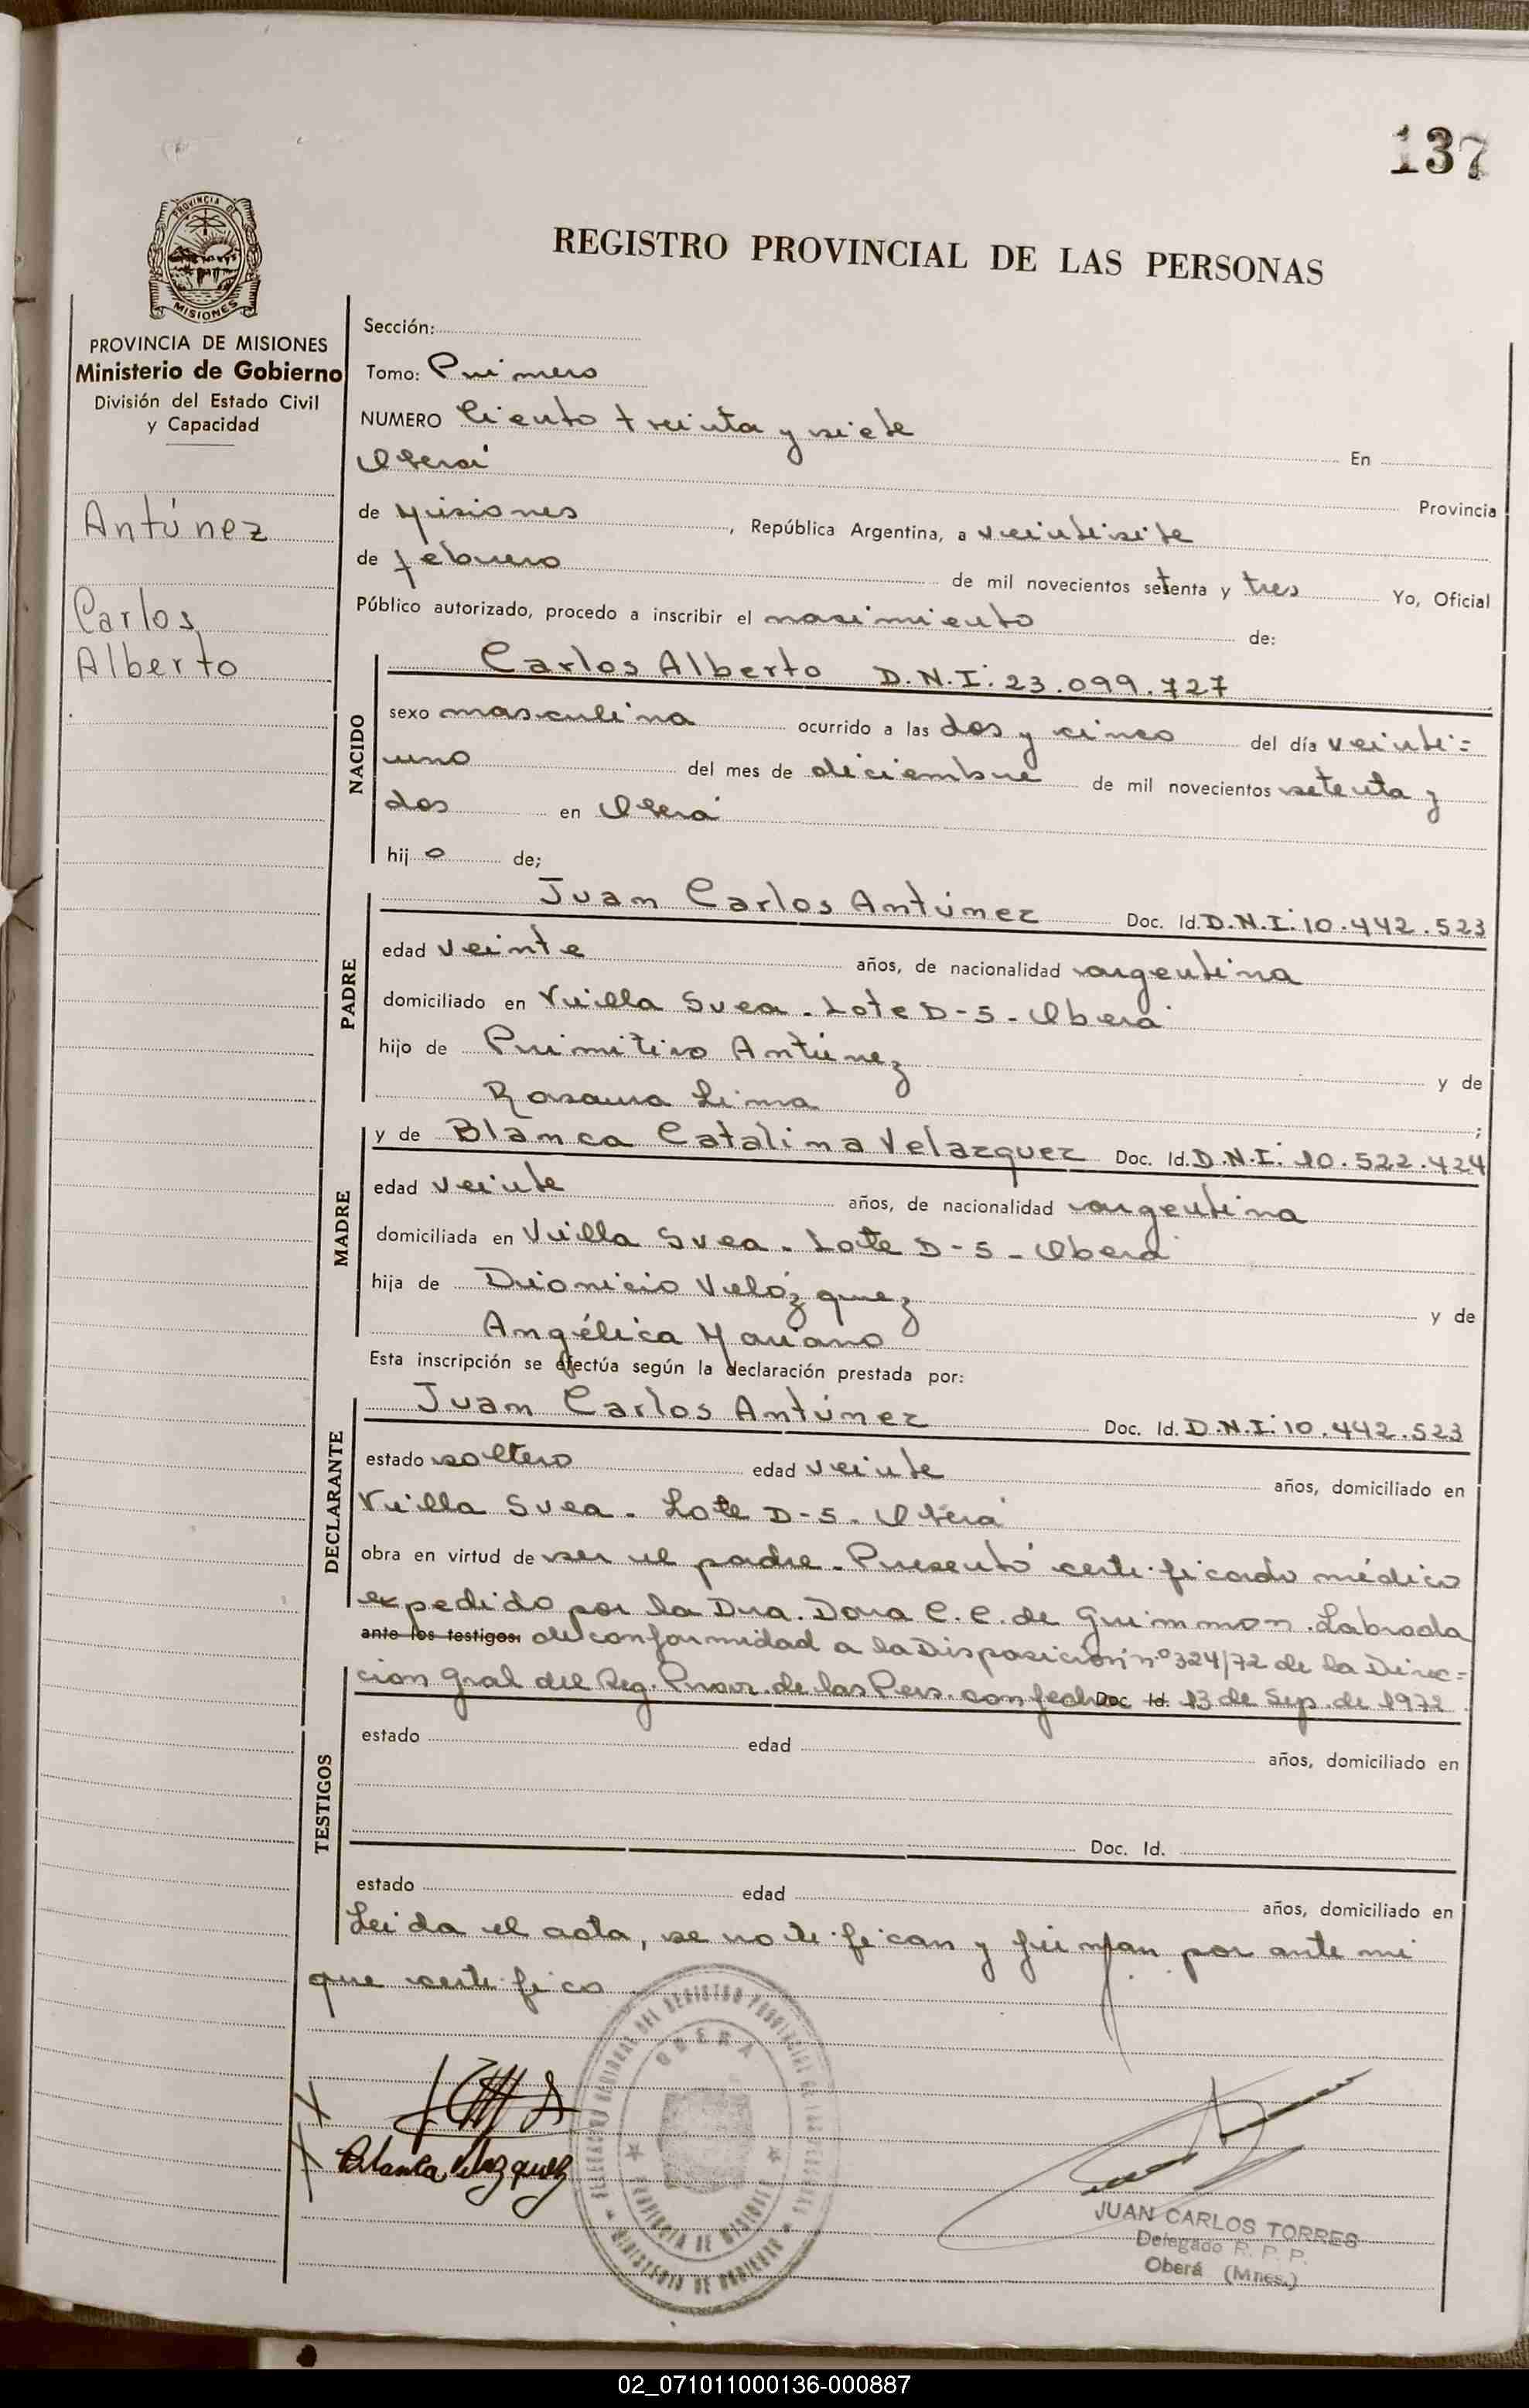 137
PROVINCIA DE
MISIONES
REGISTRO PROVINCIAL DE LAS PERSONAS
PROVINCIA DE MISIONES
Ministerio de Gobierno
División del Estado Civil
y Capacidad
Antúnez
Carlos
Alberto
Sección:
Tomo: Primero
NUMERO Ciento treinta y siete En
Oberá Provincia
de Misiones, República Argentina, a veintisiete
de febrero de mil novecientos setenta y tres Yo, Oficial
Público autorizado, procedo a inscribir el nacimiento de:
NACIDO
Carlos Alberto D.N.I: 23.099.727
sexo masculino ocurrido a las dos y cinco del día veinti=
uno del mes de diciembre de mil novecientos setenta y
dos en Oberá
hijo de;
PADRE
Juan Carlos Antúnez Doc. Id. D.N.I: 10.442.523
edad veinte años, de nacionalidad argentina
domiciliado en Villa Svea. Lote D-5- Oberá
hijo de Primitivo Antúnez y de
Rosaura Lima ;
MADRE
y de Blanca Catalina Velazquez Doc. Id. D.N.I: 10.522.424
edad veinte años, de nacionalidad argentina
domiciliada en Villa Svea. Lote D-5- Oberá
hija de Dionicio Velázquez y de
Angélica Mariano
Esta inscripción se efectúa según la declaración prestada por:
DECLARANTE
Juan Carlos Antúnez Doc. Id. D.N.I: 10.442.523
estado soltero edad veinte años, domiciliado en
Villa Svea. Lote D-5. Oberá
obra en virtud de ser el padre. Presentó certificado médico
expedido por la Dra. Dora C. C. de Labrada
ante los testigos: de conformidad a la Disposición nº 324/72 de la Direc=
ción Gral del Reg. Prov. de las Pers. con fecha Doc. Id. 13 de Sep. de 1972
TESTIGOS
estado edad años, domiciliado en
Doc. Id.
estado edad años, domiciliado en
Leida el acta, se notifican y firman por ante mi
que certifico
Blanca Velazquez
OBERA
PROVINCIA DE MISIONES
MINISTERIO DE GOBIERNO
JUAN CARLOS TORRES
Delegado R. P. P.
Oberá (Mnes.)
02_071011000136-000887